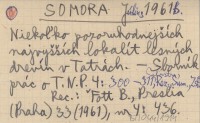 SOMORA Július 1961b.
Niekoľko pozoruhodnejších
najvyšších lokalít lesných
drevín v Tatrách. — Sborník
prác o T.N.P. 4: 300 - 311,
Rec.: Tott B., Preslia
(Praha) 33 (1961), no 4: 436.